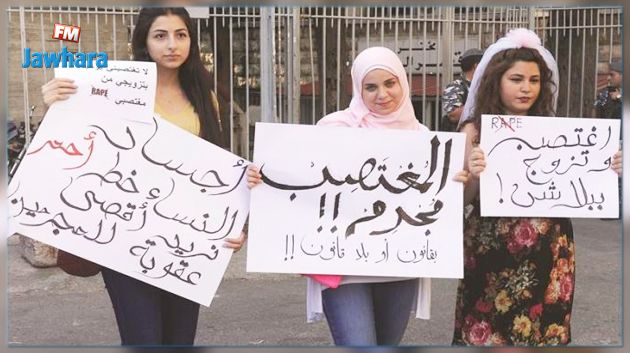 FM
Jawhara
لا تغتصبني
بتزويجي من
RAPE
مغتصبي
أجساد
النساء خط أحمر
نريد أقصى
عقوبة للمجرمين
المغتصب
مجرم !!
بقانون أو بلا قانون !!
RAPE
اغتصب
وتزوج
ببلاش !